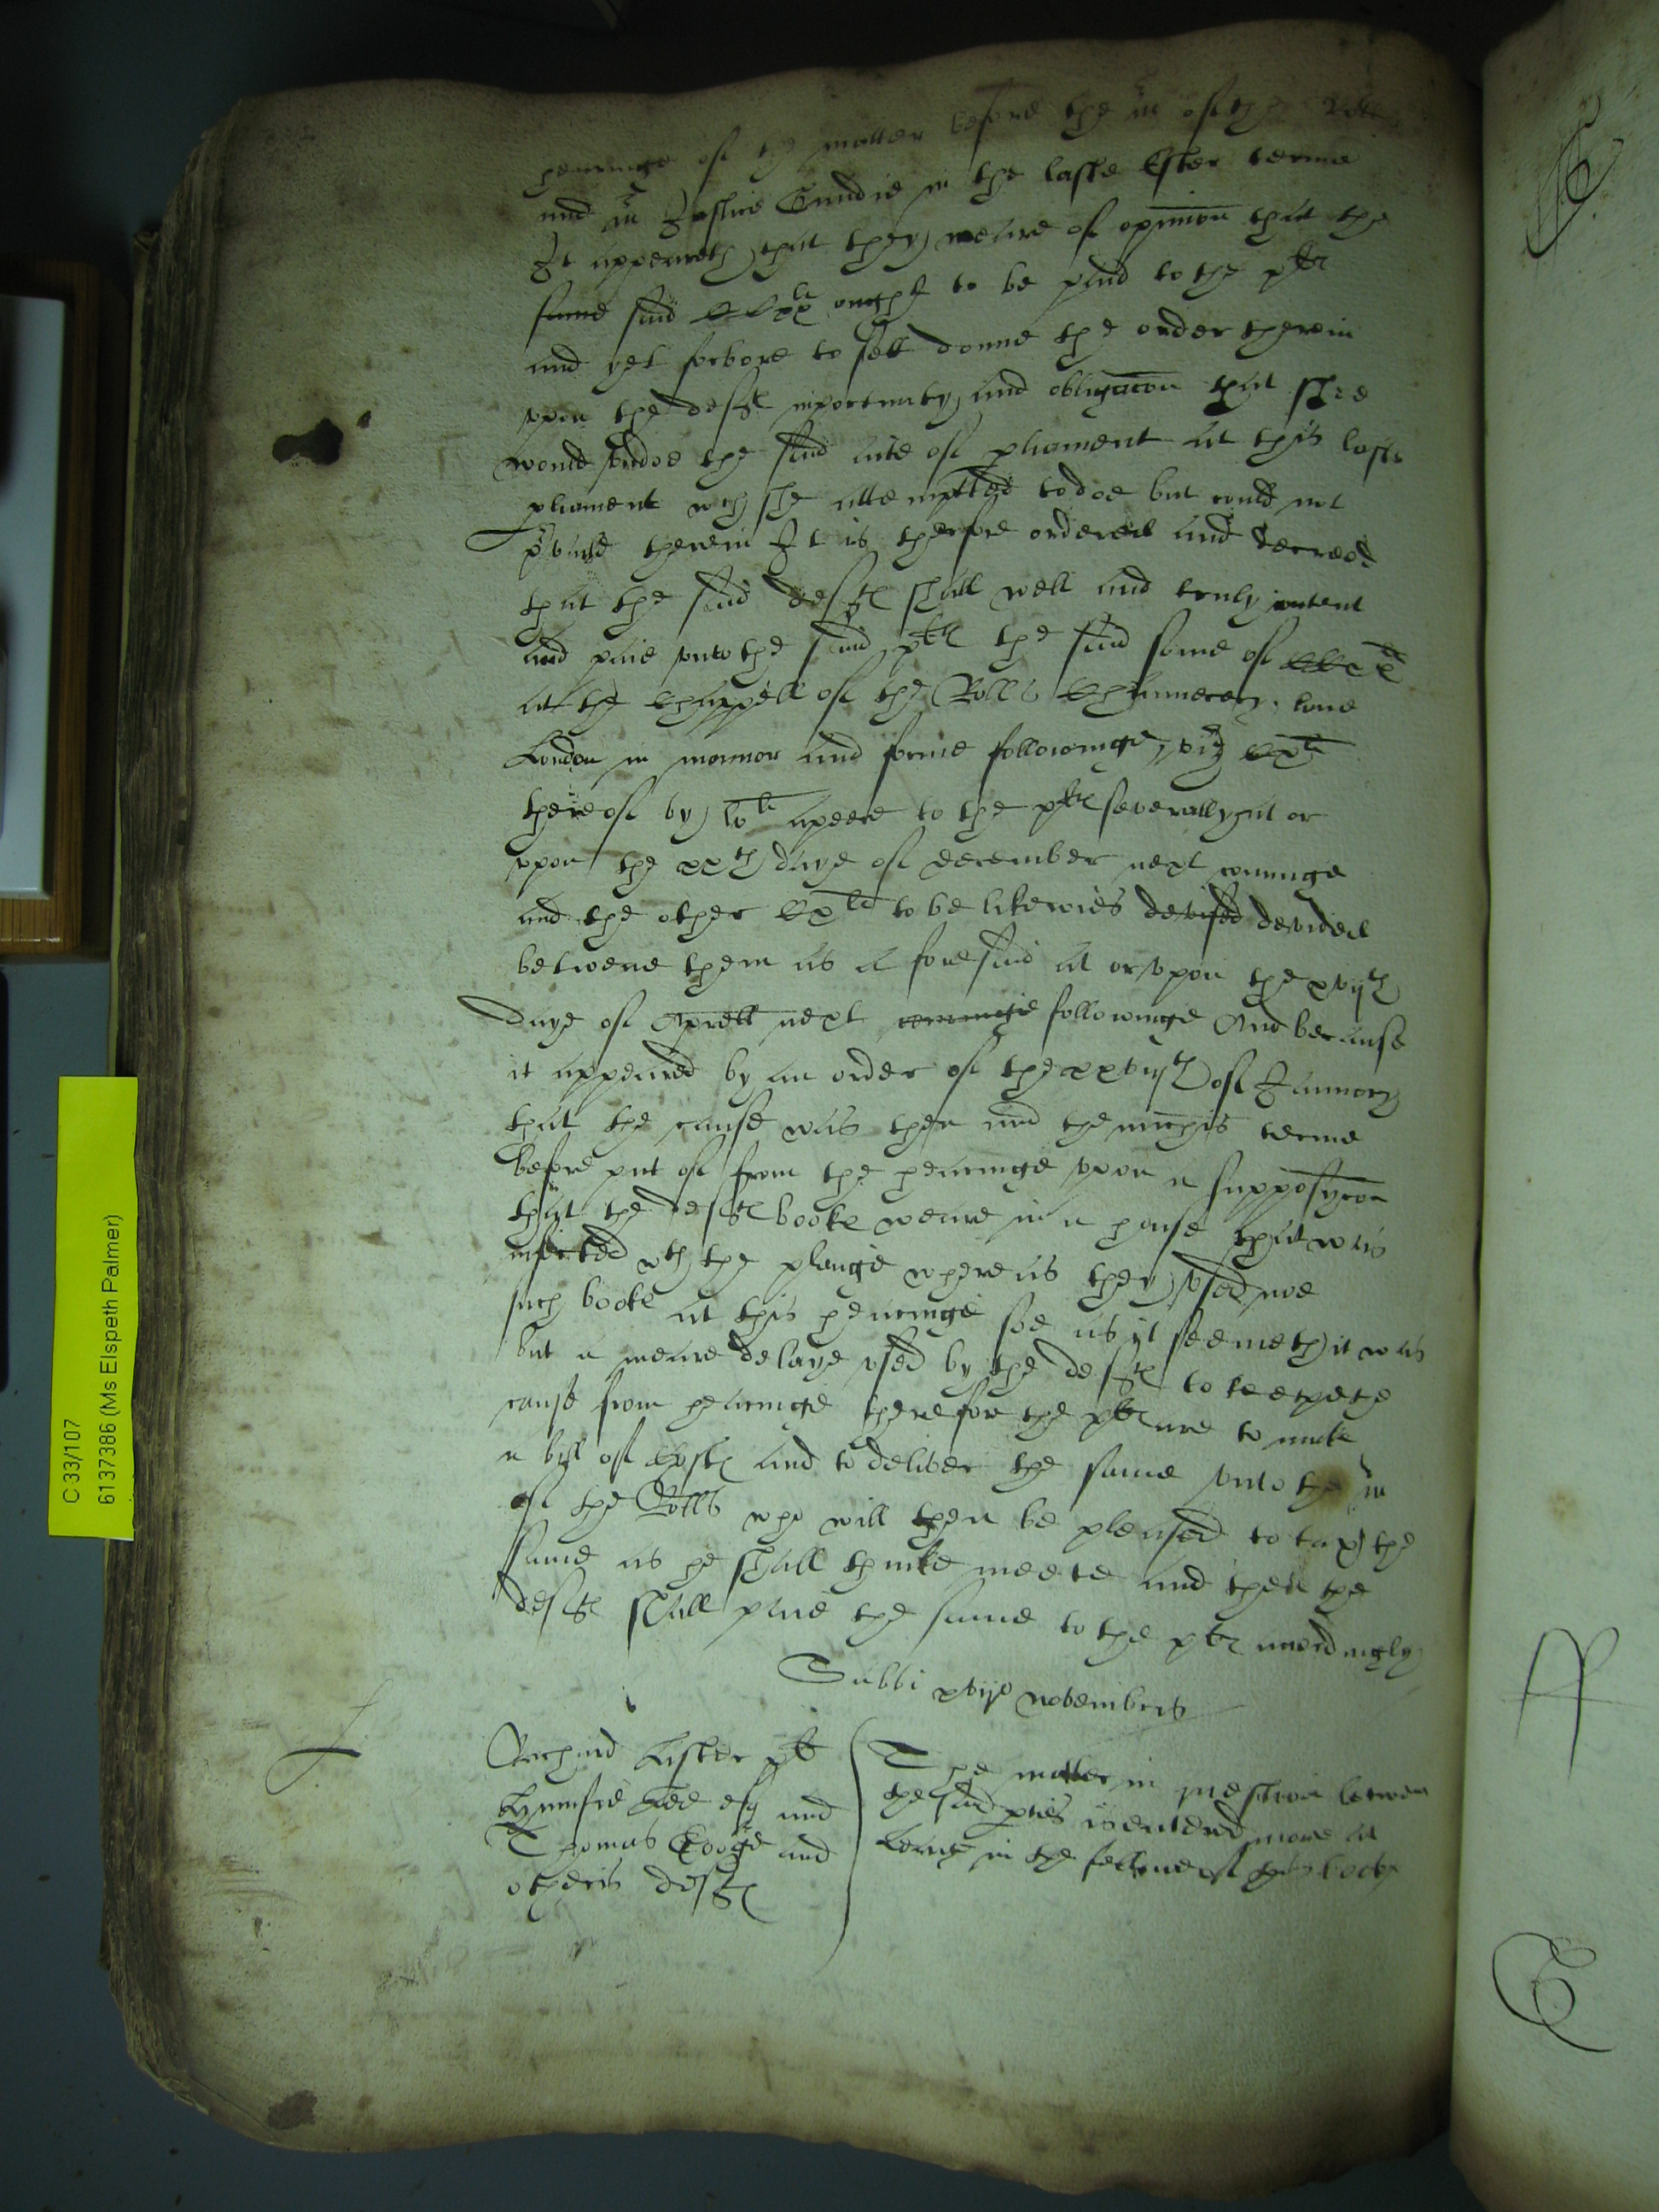 hearinge of the matter before the mr of the Rolls
and mr Justice Gawdie in the laste Ester terme
It appeareth that they weare of opinion that the
same said CCxxli ought to be paid to the pltes
and yet forbore to sett downe the order therein
vpon the deftes inportunity and obligacon that shee
would vndoe the said acte of pliament at this laste
pliament wch she attempted to doe but could not
pvaile therein It is therfore ordered and decreed
that the said deftes shall well and truly content
and paie vnto the said pltes the said some of
at the Chappell of the Rolls Chauncery lane
London in mannor and forme followinge, viz Cxli
thereof by lvli apeece to the pltes severally at or
vpon the xxth daye of December next comminge
and the other Cxli to be likewies devised devided
betwene them as a foresaid at or vpon the xvijth
daye of Aprell next comminge followinge And because
it appeared by an order of the xxvijth of January
that the cause was then and the michis terme
before put of from the hearinge vpon a supposycon
that the deftes booke weare in a house that was
infected wth the plauge whereas they vsed noe
such booke at this hearinge soe as yt seemeth it was
but a meare delaye vsed by the deftes to keepe the
cause from hearinge therefore the pltes are to make
a bill of Costes and to deliver the same vnto the mr
of the Rolls who will then be pleased to tax the
same as he shall thinke meete and then the
deftes shall paie the same to the pltes accordingly
Sabbi xvijo novembris
Richard Lister plt
Kynnfre Lee esq and
Thomas Cooge and
others deftes
The matter in question betwen
the said pties is entered more at
Large in the fellowe of this booke
C 33/107
6137386 (Ms Elspeth Palmer)